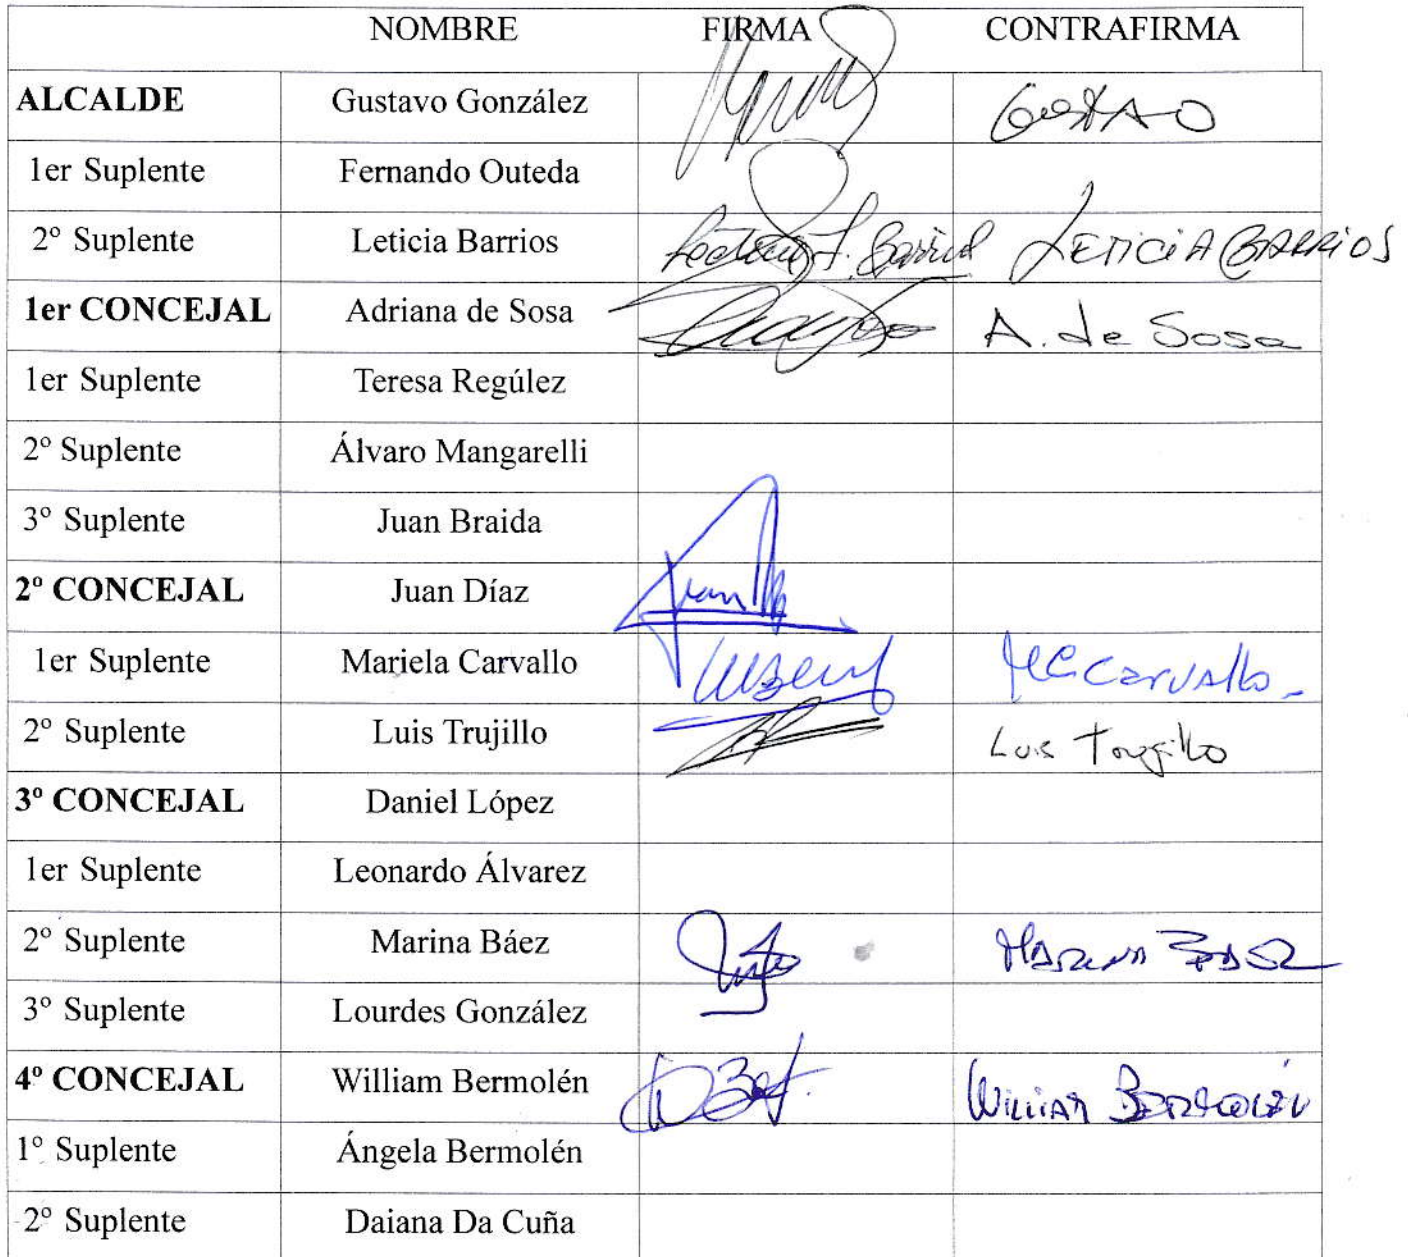 NOMBRE FIRMA CONTRAFIRMA
ALCALDE Gustavo González
1er Suplente Fernando Outeda
2º Suplente Leticia Barrios LETICIA BARRIOS
1er CONCEJAL Adriana de Sosa A. de Sosa
1er Suplente Teresa Regúlez
2º Suplente Álvaro Mangarelli
3º Suplente Juan Braida
2º CONCEJAL Juan Díaz Juan
1er Suplente Mariela Carvallo Carvallo
2º Suplente Luis Trujillo Luis Trujillo
3º CONCEJAL Daniel López
1er Suplente Leonardo Álvarez
2º Suplente Marina Báez MARINA BAEZ
3º Suplente Lourdes González
4º CONCEJAL William Bermolén WILLIAM BERMOLEN
1º Suplente Ángela Bermolén
2º Suplente Daiana Da Cuña